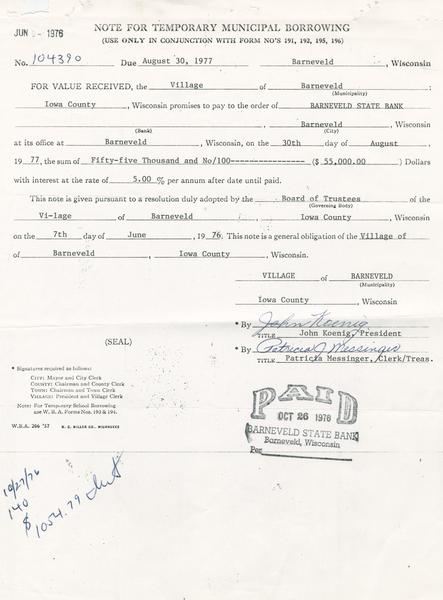 JUN 1976
NOTE FOR TEMPORARY MUNICIPAL BORROWING
(USE ONLY IN CONJUNCTION WITH FORM NO'S 191, 192, 195, 196)
No. 104390 Due August 30, 1977 Barneveld, Wisconsin
FOR VALUE RECEIVED, the Village of Barneveld
(Municipality)
Iowa County, Wisconsin promises to pay to the order of BARNEVELD STATE BANK
, Barneveld
(Bank) (City)
at its office at Barneveld, Wisconsin, on the 30th day of August,
1977, the sum of Fifty-five Thousand and No/100---------------- ($ 55,000.00) Dollars
with interest at the rate of 5.00 % per annum after date until paid.
This note is given pursuant to a resolution duly adopted by the Board of Trustees of the
(Governing Body)
Vi-lage of Barneveld, Iowa County, Wisconsin
on the 7th day of June, 1976. This note is a general obligation of the Village of
of Barneveld, Iowa County, Wisconsin.
VILLAGE of BARNEVELD
(Municipality)
Iowa County, Wisconsin
* By John Koenig
TITLE John Koenig, President
(SEAL)
* By Patricia J Messinger
TITLE Patricia Messinger, Clerk/Treas.
* Signatures required as follows:
CITY: Mayor and City Clerk
COUNTY: Chairman and County Clerk
TOWN: Chairman and Town Clerk
VILLAGE: President and Village Clerk
Note: For Temporary School Borrowing
use W.B.A. Forms Nos. 193 & 194.
W.B.A. 206 '57 H. C. MILLER CO., MILWAUKEE
PAID
OCT 26 1976
BARNEVELD STATE BANK
Barneveld, Wisconsin
Per
10/27/76
140
$1054.79 Int